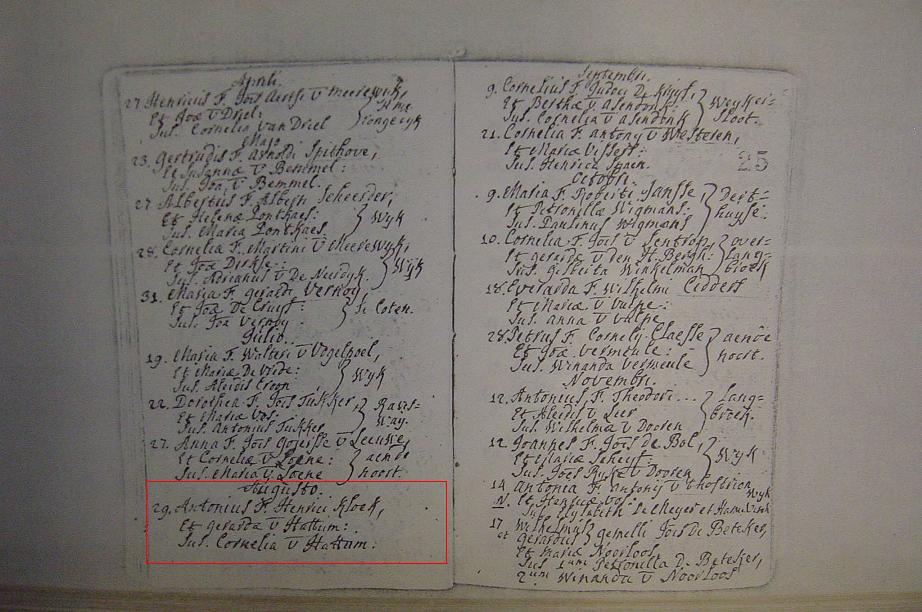 Aprili.
27. Henricus F. Jois Aertse v Meerewyk,
Et Joæ v Driel:
Sus. Cornelia van Driel
Majo
23. Gertrudis F. Arnoldi Spithove,
Et Susannæ v Bemmel:
Sus. Joa, v Bemmel.
27 Albertus F. Alberti Scheerder,
Et Helenæ Lonthaes:
Sus. Maria Lonthaes
Wyk
28. Cornelia F. Martini v Meerewyk,
Et Joæ Dirkse:
Sus. Adrianus v De Neerdyk.
Wyk
31. Maria F. gerardi Vernoy.
Et Joæ De Cruyf:
Sus. Joa Vernoy.
Coten.
Julio.
19. Maria F. Walteri v Vogelpoel,
Et Mariæ De Vride:
Sus. Aleidis
Wyk
22. Dorothea F. Jois Tukker,
Et Mariæ Vos.
Sus. Antonius Tukker
Raves=
Way.
27. Anna F. Jois v Leeuwe,
Et Corneliæ v Loene:
Sus. Maria v Loene
aende
hoorst.
Augusto.
29. Antonius F. Henrici Kloek,
Et gerarda v Hattum:
Sus. Cornelia v Hattum.
Septembri.
9. Cornelius F. Judoci De Kruyf,
Et Berthæ v asendonk:
Sus. Cornelia v asendonk
Sloot.
21. Cornelia F. antony v Westeren,
Et Mariæ Vissers:
Sus. Henrica Spaen.
25
Octobri.
9. Maria F. Roberti Jansse
Et Petronillæ Wigmans.
Sus. Paulinus Wigmans
huyse.
10. Cornelia F. Jois v
Et gerardæ v den H. Bergh:
Sus. Gisberta Winkelman
over=
Lang=
broek
18. Everarda F. Wilhelmi
Et Mariæ v Vulpe:
Sus. anna v Vulpe
28. Petrus F. Cornely Claesse
Et Joæ Vermeule:
Sus. Winanda Vermeule
aende
hoorst.
Novembri.
12. Antonius F. Theodori ...
Et Aleidis v Leer
Sus. Wilhelma v Dooren
Lang=
broek.
12. Joannes F. Jois de Bol,
Et Mariæ
Sus. Jois v Dooren
Wyk.
14. Antonia F. Antony v
Et Henricæ Vos:
Sus. Elysabeth et
Wyk
17. Wilhelmus
et gerardus
gemelli Jois De Beteker,
Et Mariæ Noorloos
Sus 1um Petronilla De Beteker,
2um Winanda v Noorloos